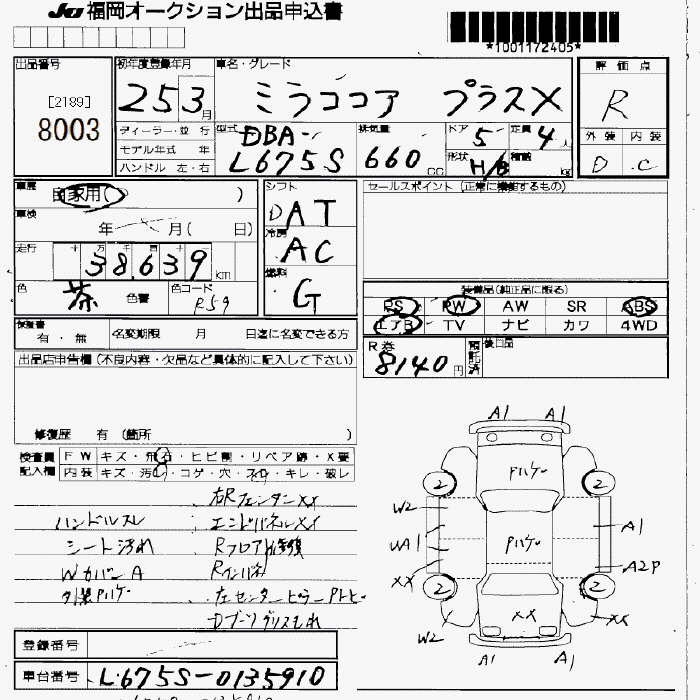 JU 福岡オークション出品申込書
*1001172405*
出品番号
[2189]
8003
初年度登録年月
25 3月
車名・グレード
ミラココア プラスX
評価点
R
外装 内装
D C
ディーラー・並行
モデル年式 年
ハンドル 左・右
型式
DBA-
L675S
排気量
660cc
ドア 5
定員 4人
形状 H/B
積載 kg
車歴
自家用( )
車検
年 月( 日)
走行
十 万 千 百 十
38,639 km
色
茶
色替
色コード
R59
シフト
DAT
冷房
AC
燃料
G
セールスポイント(正常に機能するもの)
装備品(純正品に限る)
PS PW AW SR ABS
エアB TV ナビ カワ 4WD
R券
8140円
預託済
後日品
検査書
有・無
名変期限 月 日迄に名変できる方
出品店申告欄(不良内容・欠品など具体的に記入して下さい)
修復歴 有(箇所 )
検査員記入欄
FW キズ・飛石・ヒビ割・リペア跡・X要
内装 キズ・汚れ・コゲ・穴・スレ・キレ・破レ
右RフェンダーXX
ハンドルスレ
エンドパネルXX
シート汚れ
Rフロア修復
WカバーA
Rインパネ
外装Pハゲ
左センターピラー
Dブーツグリスもれ
A1 A1
2 2
Pハゲ
W2
UA1
XX
Pハゲ
A1
A2P
2 2
W2
XX
XX
A1 A1
登録番号
車台番号
L675S-0135910